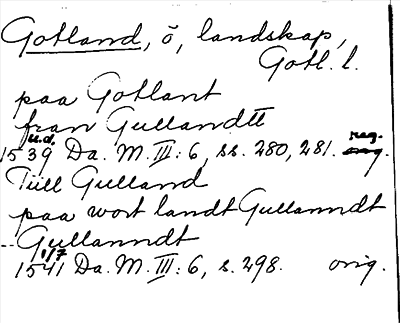 Gotland, ö, landskap,
Gotl. l.
paa Gotlant
fran Gullandtt
u.d. reg.
1539 Da. M. III: 6, ss. 280, 281. orig.
Till Gulland
paa wort landt Gullanndt
-- Gullanndt
1/7
1541 Da. M. III: 6, s. 298. orig.